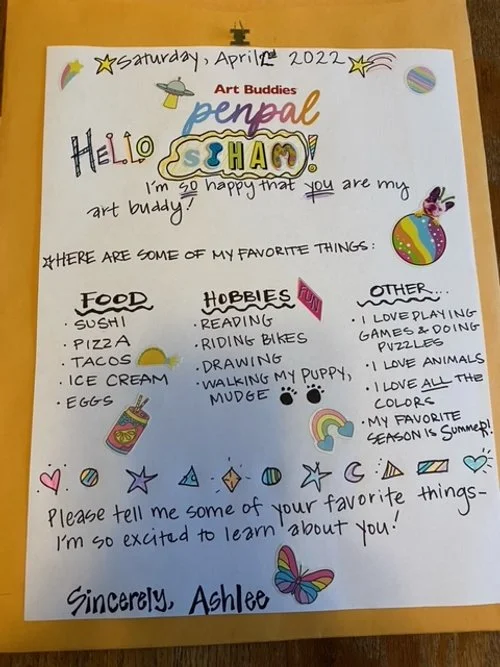 Saturday, April 2nd 2022
Art Buddies
penpal
HELLO SIHAM!
I'm so happy that you are my
art buddy!
HERE ARE SOME OF MY FAVORITE THINGS:
FOOD
· SUSHI
· PIZZA
· TACOS
· ICE CREAM
· EGGS
HOBBIES
FUN
· READING
· RIDING BIKES
· DRAWING
· WALKING MY PUPPY,
MUDGE
OTHER...
· I LOVE PLAYING
GAMES & DOING
PUZZLES
· I LOVE ANIMALS
· I LOVE ALL THE
COLORS
· MY FAVORITE
SEASON IS Summer!
Please tell me some of your favorite things-
I'm so excited to learn about you!
Sincerely, Ashlee